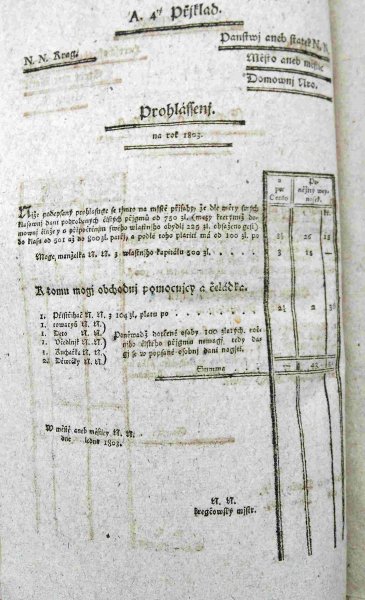 A. 4tý Přjklad.
N. N. Krag.
Panstwj aneb statek N. N.
Město aneb městec
Domownj Nro.
Prohlássenj.
na rok 1803.
a
pro
Cento
Pe-
něžný wey-
nosek.
Nјže podepsaný prohlassuge se tjmto na mjstě přjsahy, že dle mјry swých
klasownj dani podrobených čistých přjgmů od 750 zl. (mezy kterýmiž do-
mownj činže s připočtenjm swého wlastnjho obydlj 225 zl. obsaženo gest)
do klasy od 501 až do 800 zl. patřj, a podlé toho platiti má od 100 zl. po
Moge, manželka N. N. z wlastnjho kapitálu 500 zl.
3 15 —
K tomu mogj obchodnj pomocnjcy a čeládka.
1. Přjstěhač N. N. z 104 zl. platu po
1. towaryš N. N.
1. Deto N. N.
1. Učedlnjk N. N.
1. Kuchařka N. N.
2. Děwečky N. N.
Poněwadž dotčené osoby 100 zlatých roč-
njho čistého přjgmu nemagj, tedy da-
gj se w popsané osobnj dani nagjti.
Summa
W městě aneb městcy N. N.
dne ledna 1803.
N. N.
kregčowský mistr.